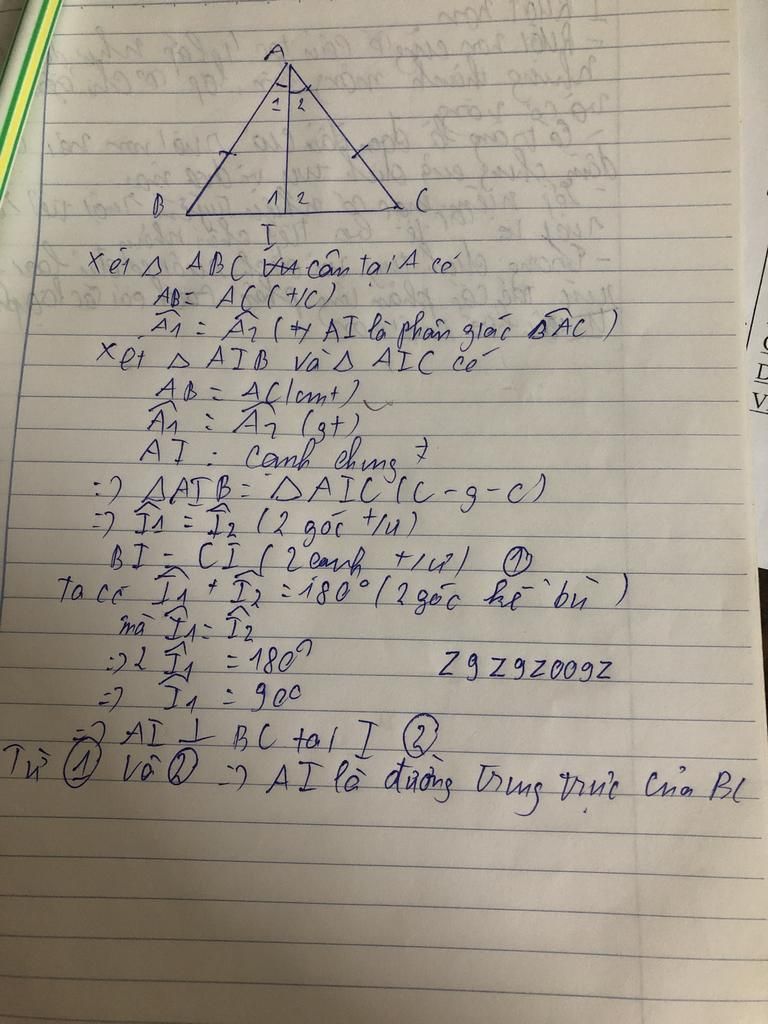 A
1 2
B 1 2 C
I
Xét △ ABC cân tại A có
AB = AC (t/c)
Â1 = Â2 (t/c AI là phân giác BAC)
Xét △ AIB và △ AIC có
AB = AC (cmt)
Â1 = Â2 (gt)
AI : canh chung
=> △AIB = △AIC (c-g-c)
=> Î1 = Î2 (2 góc t/ư)
BI = CI (2 canh t/ư) ①
ta có Î1 + Î2 = 180° (2 góc kề bù)
mà Î1 = Î2
=> 2 Î1 = 180°
=> Î1 = 90°
z9z9z009z
=> AI ⊥ BC tại I ②
Từ ① và ② => AI là đường trung trực của BC